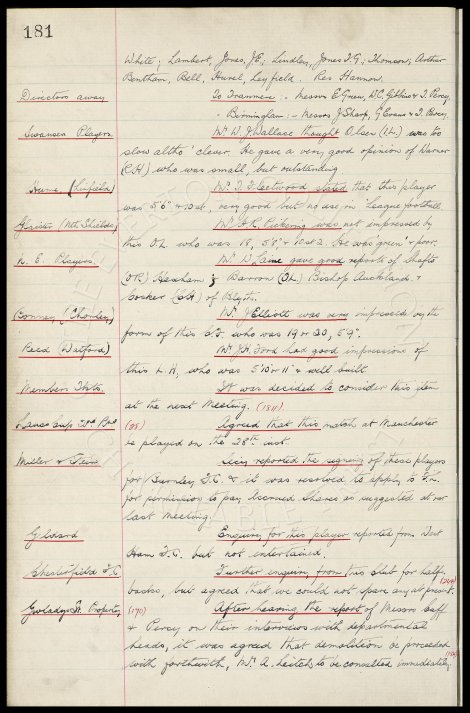 181
White; Lambert, Jones, J.E; Lindley, Jones T.G; Thomson; Arthur
Bentham, Bell, Hurel, Leyfield. Res Hannon.
Directors away To Tranmere:- Messrs E Green, W.C. Gibbins & T. Percy.
" Birmingham:- Messrs J Sharp, G Evans & T. Percy.
Swansea Players Mr W J Wallace thought Olsen (I.L.) was too
slow altho' clever. He gave a very good opinion of Warner
(R.H) who was small, but outstanding.
Hume. (Linfield) Mr. J. Fleetwood stated that this player
was 5'6" & 10st, very good but no use in League football
Glaister (Nth Shields) Mr. H.R. Pickering was not impressed by
this O.L. who was 18, 5'8" & 10st 2. He was green & poor.
N. E. Players. Mr W. Lame gave good reports of Shafts
(O.R.) Hexham; Barron (O.L.) Bishop Auckland &
(C.H) of Blyth.
Bonney (Chorley) Mr. J Elliott was very impressed by the
form of this C.F. who was 19 or 20, 5'9".
Reed (Watford) Mr. J.H. Ford had good impressions of
this L.H, who was 5'10 or 11" & well built.
Members. Tkts. It was decided to consider this item
at the next Meeting. (1811).
Lancs Cup 2nd Rnd (95) Agreed that this match at Manchester
be played on the 28th inst.
Miller & Secy reported the signing of these players
for Burnley F.C. & it was resolved to apply to F.L.
for permission to pay Accrued Shares as suggested at our
last Meeting.
Gillard Enquiry for this player reported from West
Ham F.C. but not entertained.
Chesterfield F.C. Further enquiry from this club for half-
backs, but agreed that we could not spare any at present. (204)
Gwladys St. Property (170) After hearing the report of Messrs Cuff
& Percy on their interviews with departmental
heads, it was agreed that demolition be proceeded
with forthwith, Mr. A. Leitch to be consulted immediately.